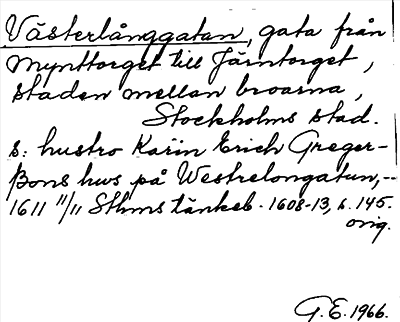 Västerlånggatan, gata från
Mynttorget till Järntorget,
staden mellan broarna,
Stockholms stad.
s: hustro Karin Erich Greger-
ßons hws på Westrelongatun,--
1611 11/11 Sthms tänkeb. 1608-13, s. 145.
orig.
G.E. 1966.